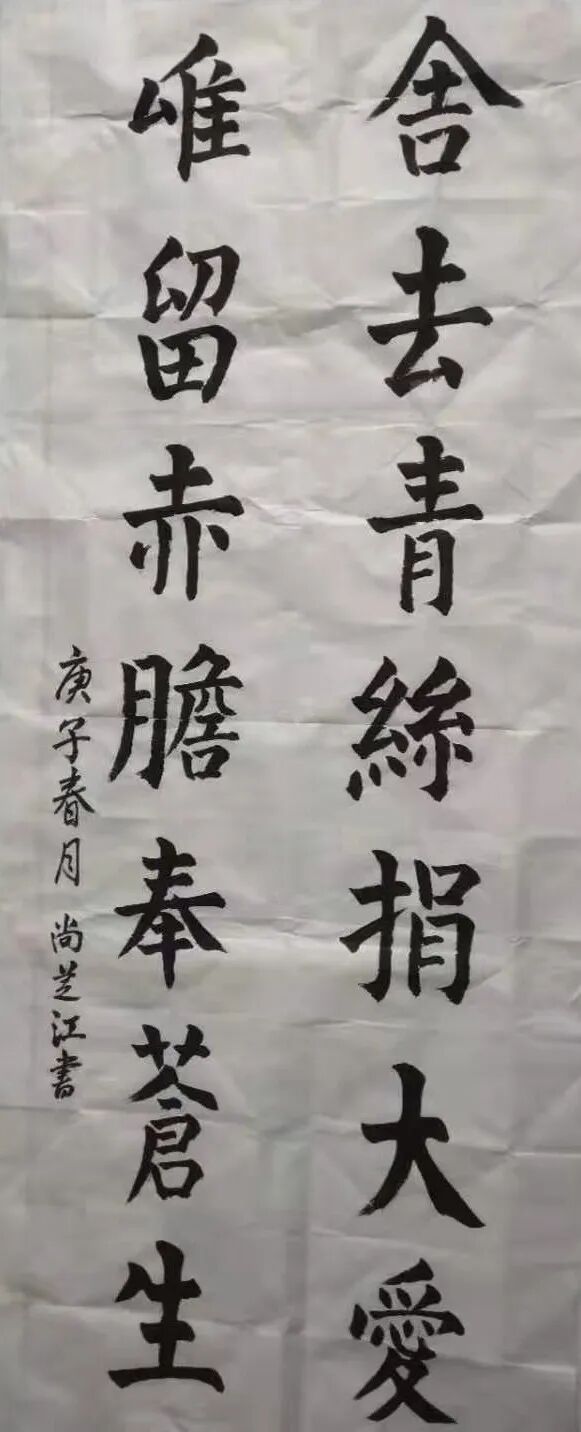 舍去青絲捐大愛
唯留赤膽奉蒼生
庚子春月 尚芝江書